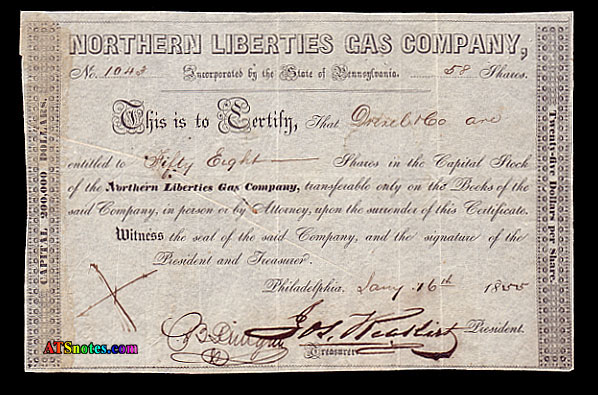 NORTHERN LIBERTIES GAS COMPANY,
No. 1043 Incorporated by the State of Pennsylvania. 58 Shares.
This is to Certify, That Drexel & Co are
entitled to Fifty Eight Shares in the Capital Stock
of the Northern Liberties Gas Company, transferable only on the Books of the
said Company, in person or by Attorney, upon the surrender of this Certificate.
Witness the seal of the said Company, and the signature of the
President and Treasurer.
Philadelphia, Jany 16th 1855
Jos. President.
Treasurer
CAPITAL 200,000 DOLLARS.
Twenty-five Dollars per Share.
ATSnotes.com